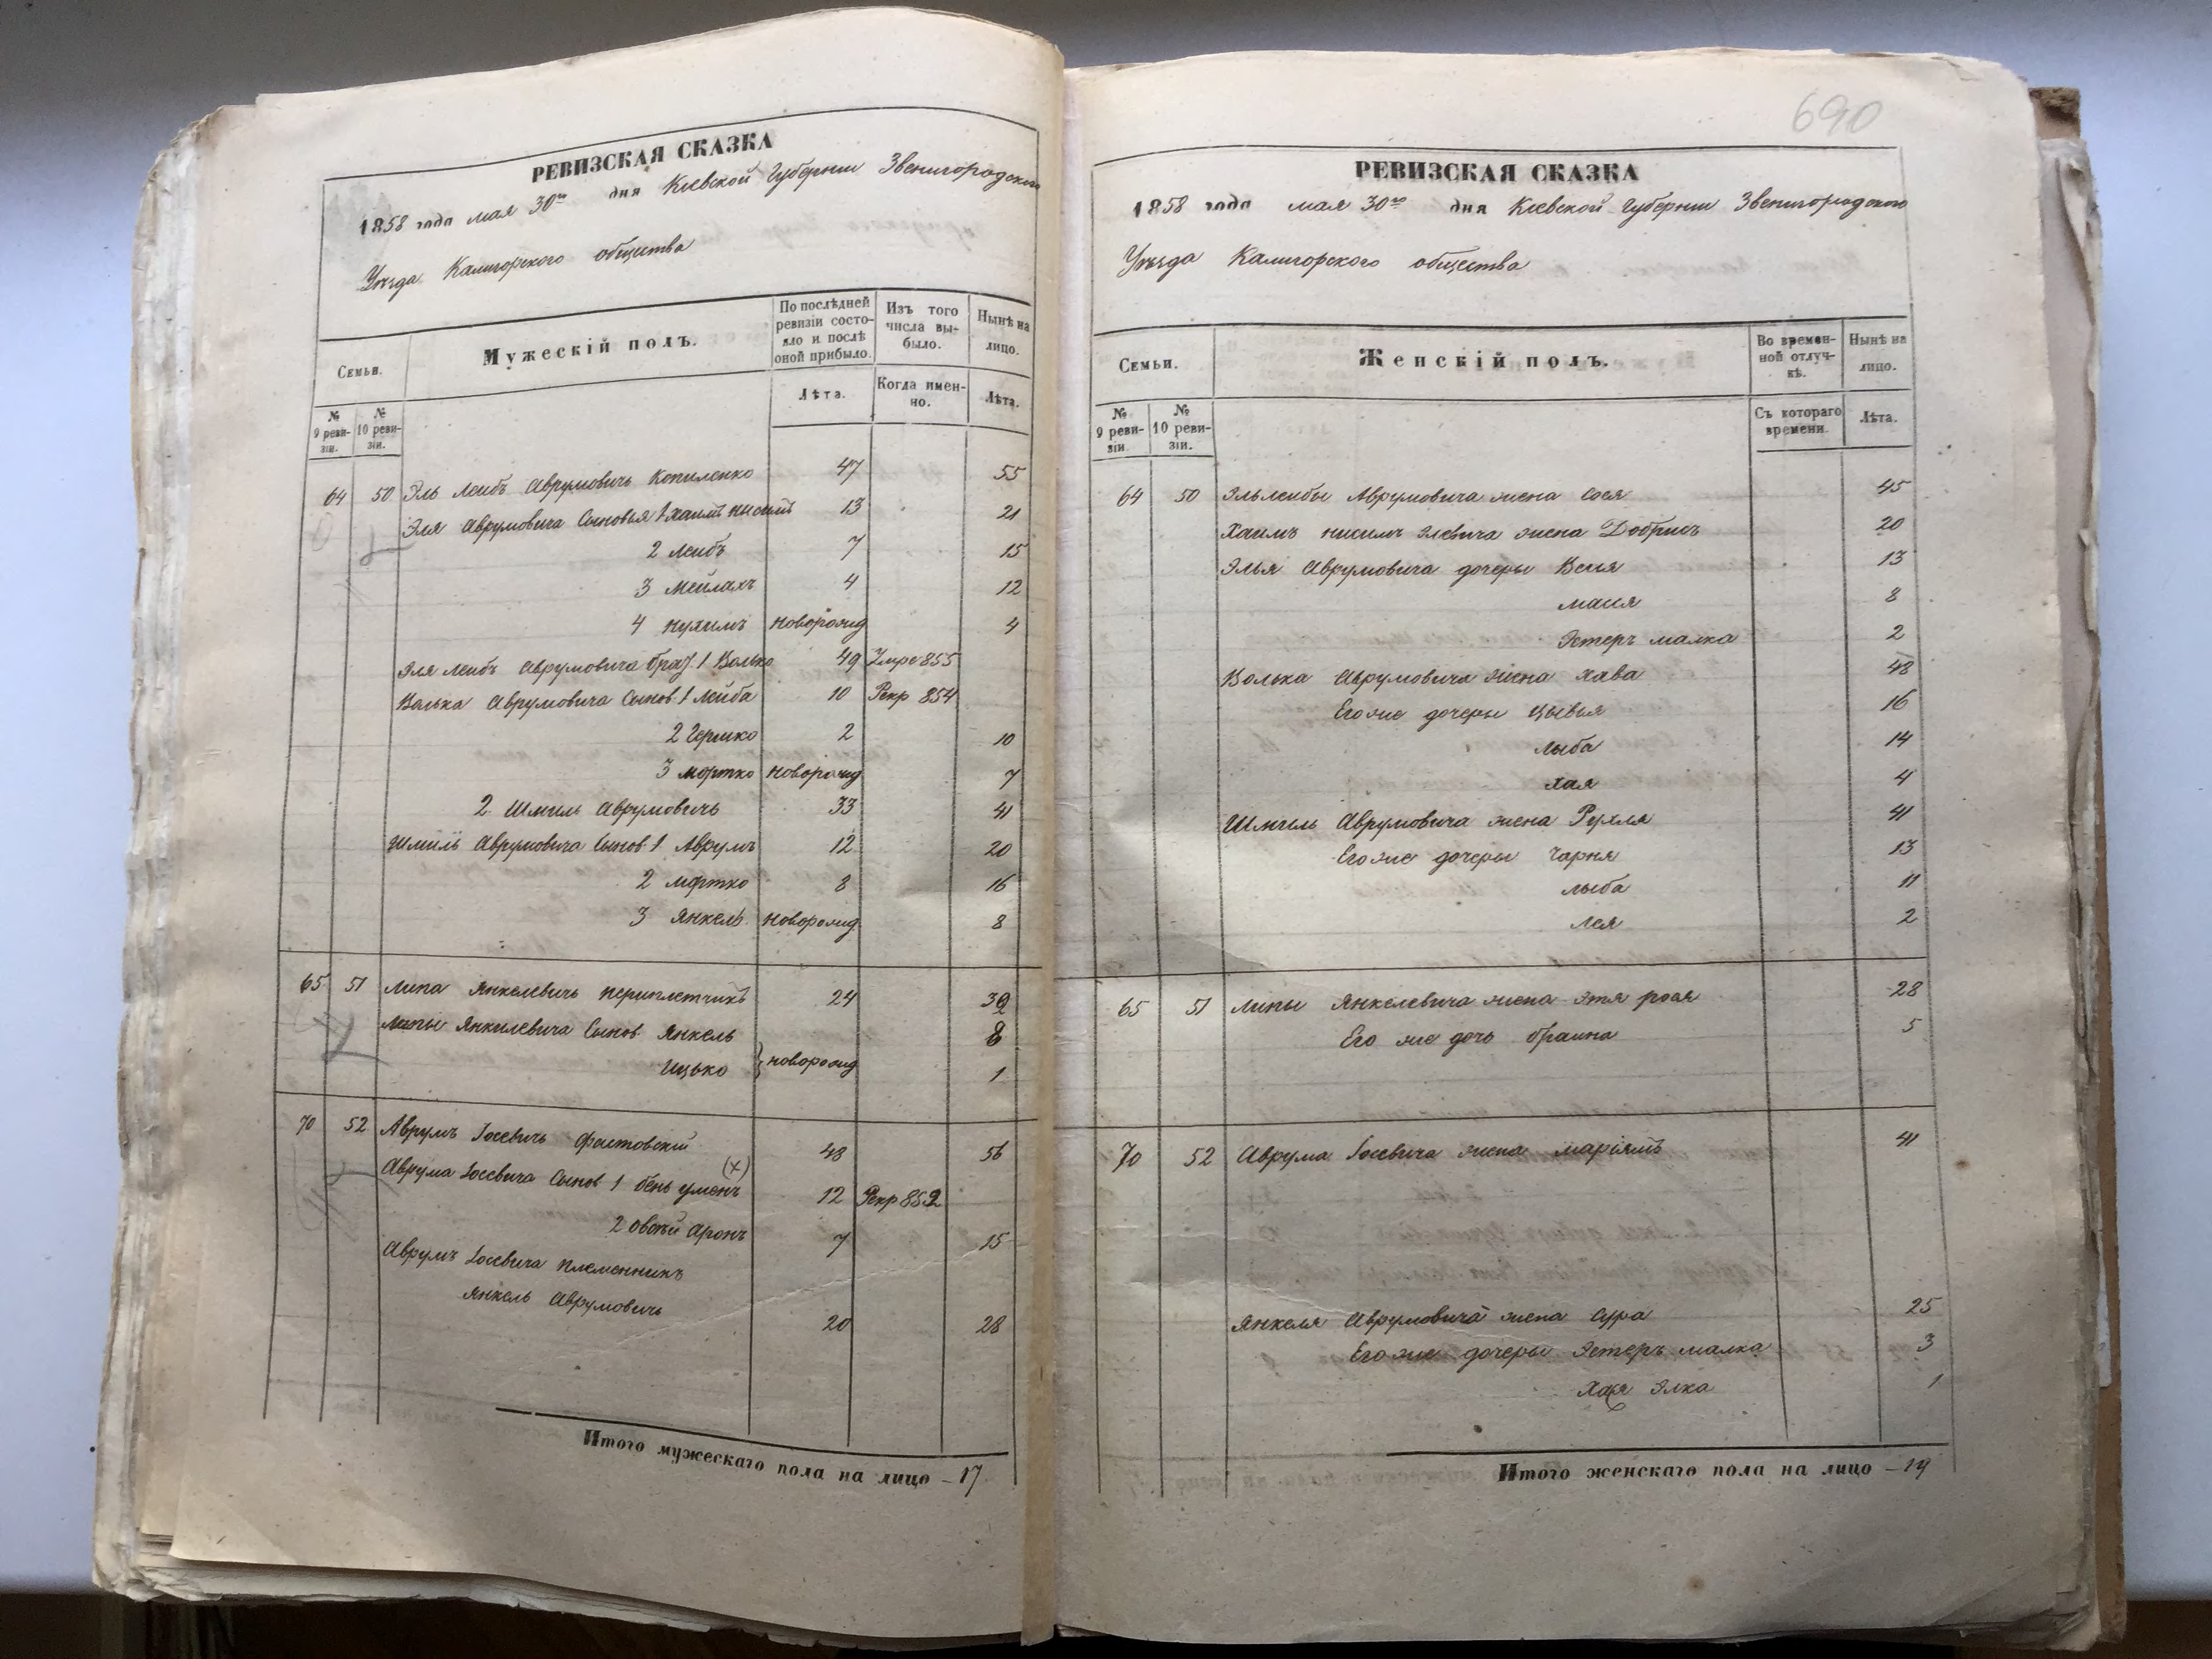 РЕВИЗСКАЯ СКАЗКА
1858 года мая 30го дня Кіевской Губерніи Звенигородского
Уѣзда Калигорского общества
Семьи.
Мужескій полъ.
По послѣдней ревизіи состояло и послѣ оной прибыло.
Изъ того числа выбыло.
Нынѣ на лицо.
№ 9 ревизіи.
№ 10 ревизіи.
Лѣта.
Когда именно.
Лѣта.
64 50 Эль Леибъ Аврумовичь Копиленко 47 55
Эля Аврумовича Сыновья 1 хаимъ нисимъ 13 21
2 леибъ 7 15
3 Мейлахъ 4 12
4 нухимъ новорожд 4
Эля Леибъ Аврумовича брат. 1 Волько 49 Умре 855
Волька Аврумовича Сынов. 1 Лейба 10 Рекр 854
2 Гершко 2 10
3 мортко новорожд 7
2 Шмиль Аврумовичь 33 41
Шмиль Аврумовича Сынов 1 Аврумъ 12 20
2 мортко 8 16
3 Янкель новорожд 8
65 51 Липа Янкелевичь переплетчикъ 24 32
Липы Янкилевича Сынов Янкель 8
Ицько } новорожд 1
70 52 Аврумъ Iосевичь Фастовскій 48 56
Аврума Iосевича Сынов 1 бень (х) 12 Рекр 852
2 овсѣй Аронъ 7 15
Аврумъ Iосевича племенникъ
Янкель Аврумовичь 20 28
Итого мужескаго пола на лицо – 17
690
РЕВИЗСКАЯ СКАЗКА
1858 года мая 30го дня Кіевской Губерніи Звенигородского
Уѣзда Калигорского общества
Семьи.
Женскій полъ.
Во временной отлучкѣ.
Нынѣ на лицо.
№ 9 ревизіи.
№ 10 ревизіи.
Съ котораго времени.
Лѣта.
64 50 Эльлеибы Аврумовича жена Сося 45
Хаимъ нисимъ Элевича жена Добришъ 20
Элья Аврумовича дочеры Вася 13
мася 8
Эстеръ малка 2
Волька Аврумовича жена хава 48
Его же дочеры Цывья 16
лыба 14
хая 4
Шмиль Аврумовича жена Рухля 41
Его же дочеры Чарня 13
лыба 11
лея 2
65 51 Липы Янкелевича жена Этя рося 28
Его же дочь браина 5
70 52 Аврума Iосевича жена маріямъ 41
Янкеля Аврумовича жена Сура 25
Его же дочеры Эстеръ малка 3
Хая Элка 1
Итого женскаго пола на лицо – 19